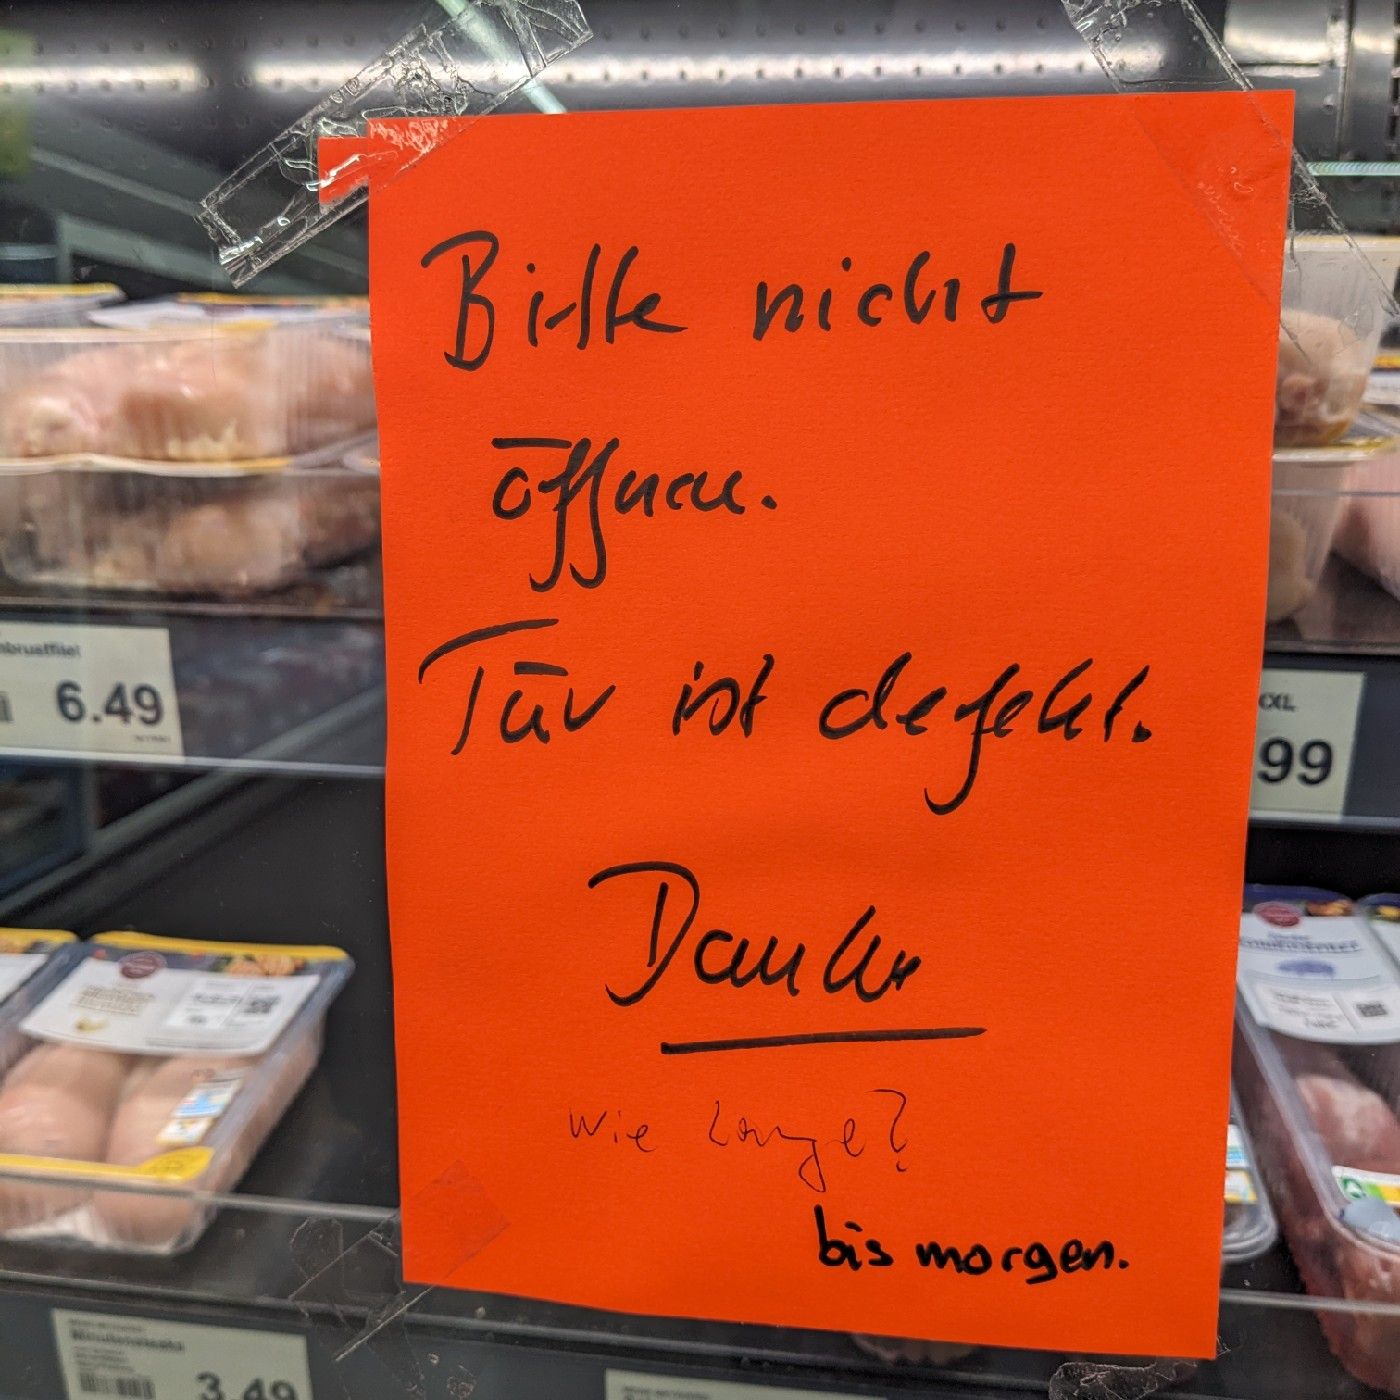 Bitte nicht
öffnen.
Tür ist defekt.
Danke
Wie Lange?
bis morgen.
6.49
XXL
99
3.49